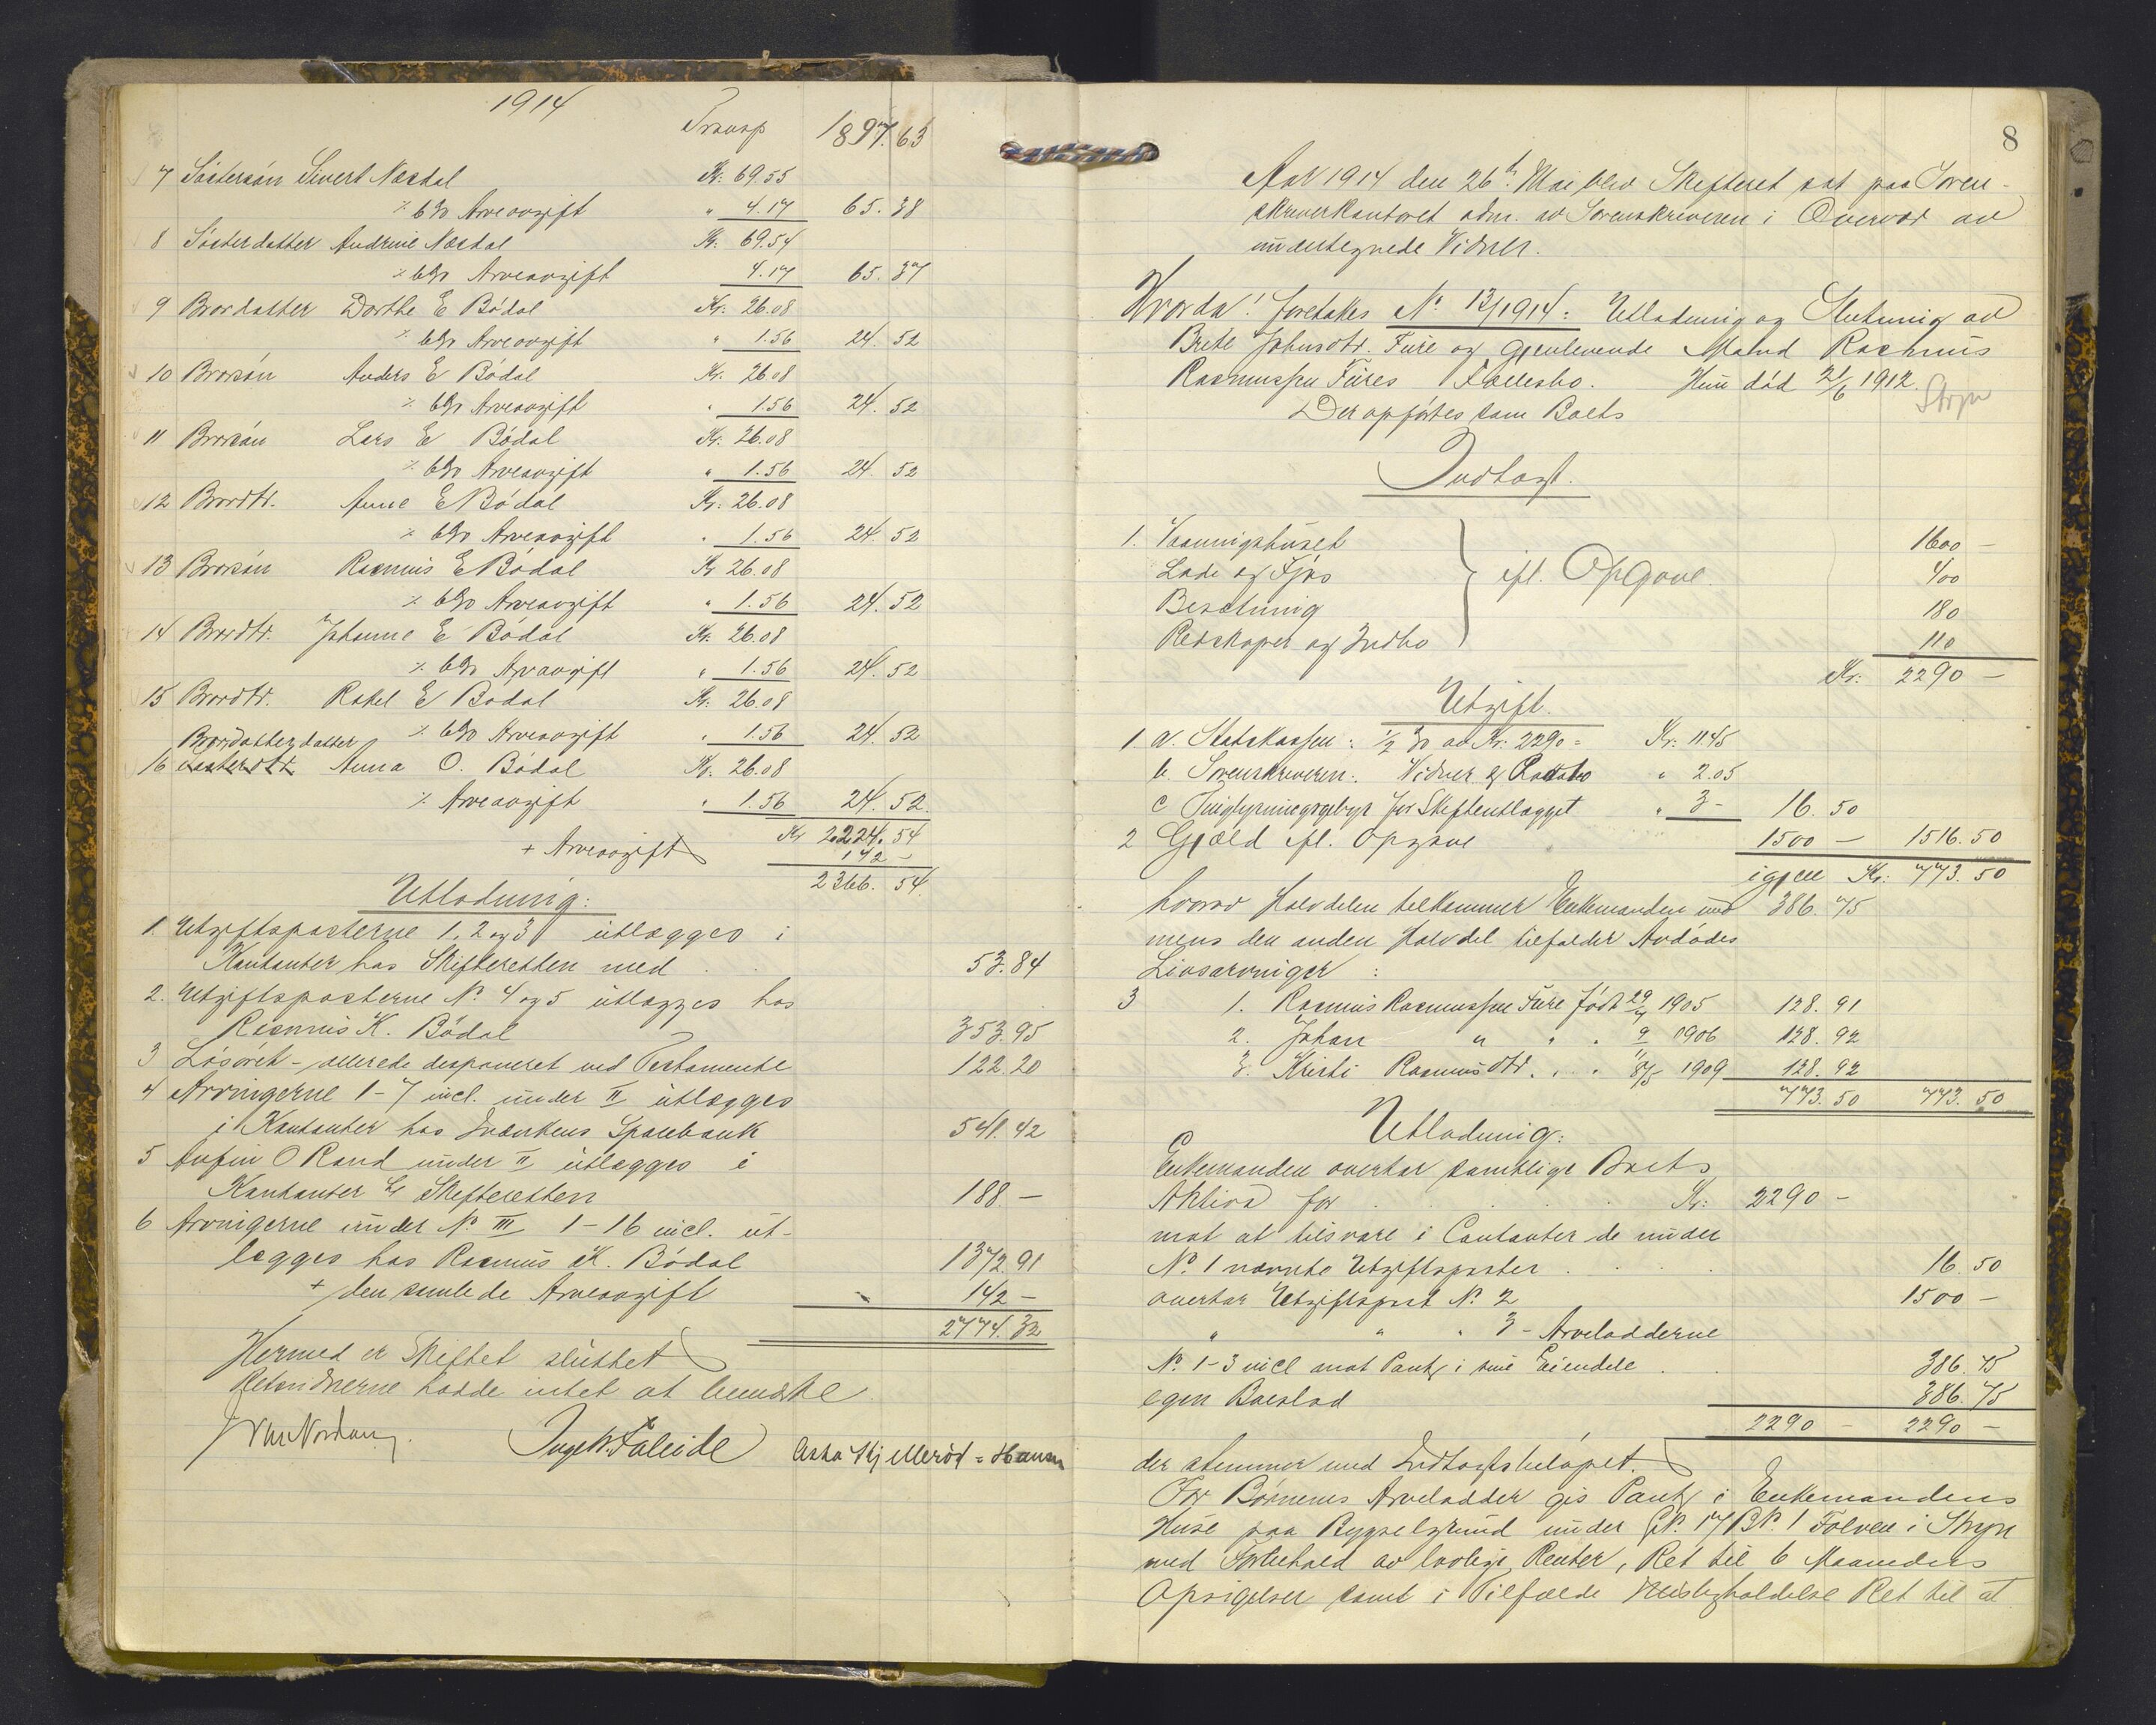 1914
Transp 1897.63
7 Søstersøn Sivert Næsdal Kr. 69.55
÷ 6% Arveavgift " 4.17 65.38
8 Søsterdatter Andrine Næsdal Kr. 69.54
÷ 6% Arveavgift 4.17 65.37
9 Brordatter Dorthe E Bødal Kr. 26.08
÷ 6% Arveavgift " 1.56 24.52
10 Brorsøn Anders E Bødal Kr. 26.08
÷ 6% Arveavgift " 1.56 24.52
11 Brorsøn Lars E Bødal Kr. 26.08
÷ 6% Arveavgift " 1.56 24.52
12 Brordtr. Anne E Bødal Kr. 26.08
÷ 6% Arveavgift " 1.56 24.52
13 Brorsøn Rasmus E Bødal Kr 26.08
÷ 6% Arveavgift " 1.56 24.52
14 Brordtr. Johanne E Bødal Kr. 26.08
÷ 6% Arveavgift " 1.56 24.52
15 Brordtr. Rakel E Bødal Kr. 26.08
÷ 6% Arveavgift " 1.56 24.52
Brordatterdatter
16 Søsterdtr Anna O. Bødal Kr. 26.08
÷ Arveavgift " 1.56 24.52.
Kr 2224.54
+ Arveavgift 142 –
2366.54.
Utlodning:
1. Utgiftsposterne 1, 2 og 3 utlægges i
Kontanter hos Skifteretten med 53.84
2. Utgiftsposterne No 4 og 5 utlægges hos
Rasmus K. Bødal 353.95
3 Løsøret – allerede disponeret ved Testamente 122.20
4 Arvingerne 1–7 incl. under II utlægges
i Kontanter hos Indvikens Sparebank 541.42
5 Anfin O Rand under II utlægges i
Kontanter hos Skifteretten 188 –
6 Arvingerne under No III 1–16 incl. ut-
lægges hos Rasmus K. Bødal 1372.91
+ den samlede Arveavgift 142 –
2774.32
Hermed er Skiftet sluttet
Retsvidnerne hadde intet at bemerke.
Inge W. Faleide Asta Kjelleröd = Hansen
8
Aar 1914 den 26de Mai blev Skifteret sat paa Soren-
skriverkontoret adm. av Sorenskriveren i Overvær av
undertegnede Vidner.
Hvorda! foretakes No 13/1914: Utlodning og Slutning av
Brite Johnsdtr. Fure og gjenlevende Mand Rasmus
Rasmussen Fures Fællesbo. Hun død 21/6 1912.
Stryn
Der opførtes som Boets
Indtægt.
1. Vaaningshuset 1600 –
Lade og Fjøs 400
ifl. Opgave.
Besetning 180
Redskaper og Indbo 110
Kr. 2290 –
Utgift.
1 a. Statskassen: 1/2 % av Kr. 2290 = Kr. 11.45
b. Sorenskriveren: Vidner " 2.05
c Tinglysningsgebyr for Skifteutlægget " 3 – 16.50
2 Gjæld ifl. Opgave 1500 – 1516.50
igjen Kr. 773.50
hvorav Halvdelen tilkommer Enkemanden med 386.75
mens den anden Halvdel tilfalder Avdødes
Livsarvinger:
3 1. Rasmus Rasmussen Fure født 29/4 1905 128.91
2. Johan " " " 9/11 1906 128.92
3. Kristi Rasmusdtr. " " 8/5 1909 128.92
773.50 773.50
Utlodning:
Enkemanden overtar samtlige Boets
Aktiva for Kr. 2290 –
mot at tilsvare i Contanter de under
No 1 nævnte Utgiftsposter 16.50
overtar Utgiftspost No 2 1500 –
" " " 3 – Arvelodderne
No 1–3 incl mot Pant i sine Eiendele 386.75
egen Boeslod 386.75
2290 – 2290 –
der stemmer med Indtægtsbeløpet.
For Børnenes Arvelodder gis Pant i Enkemandens
Huse paa Bygselgrund under GNo. 17 BNo. 1 Folven i Stryn
med Forbehold av lovlige Renter, Ret til 6 Maaneders
Opsigelser samt i Tilfælde Misligholdelse Ret til at